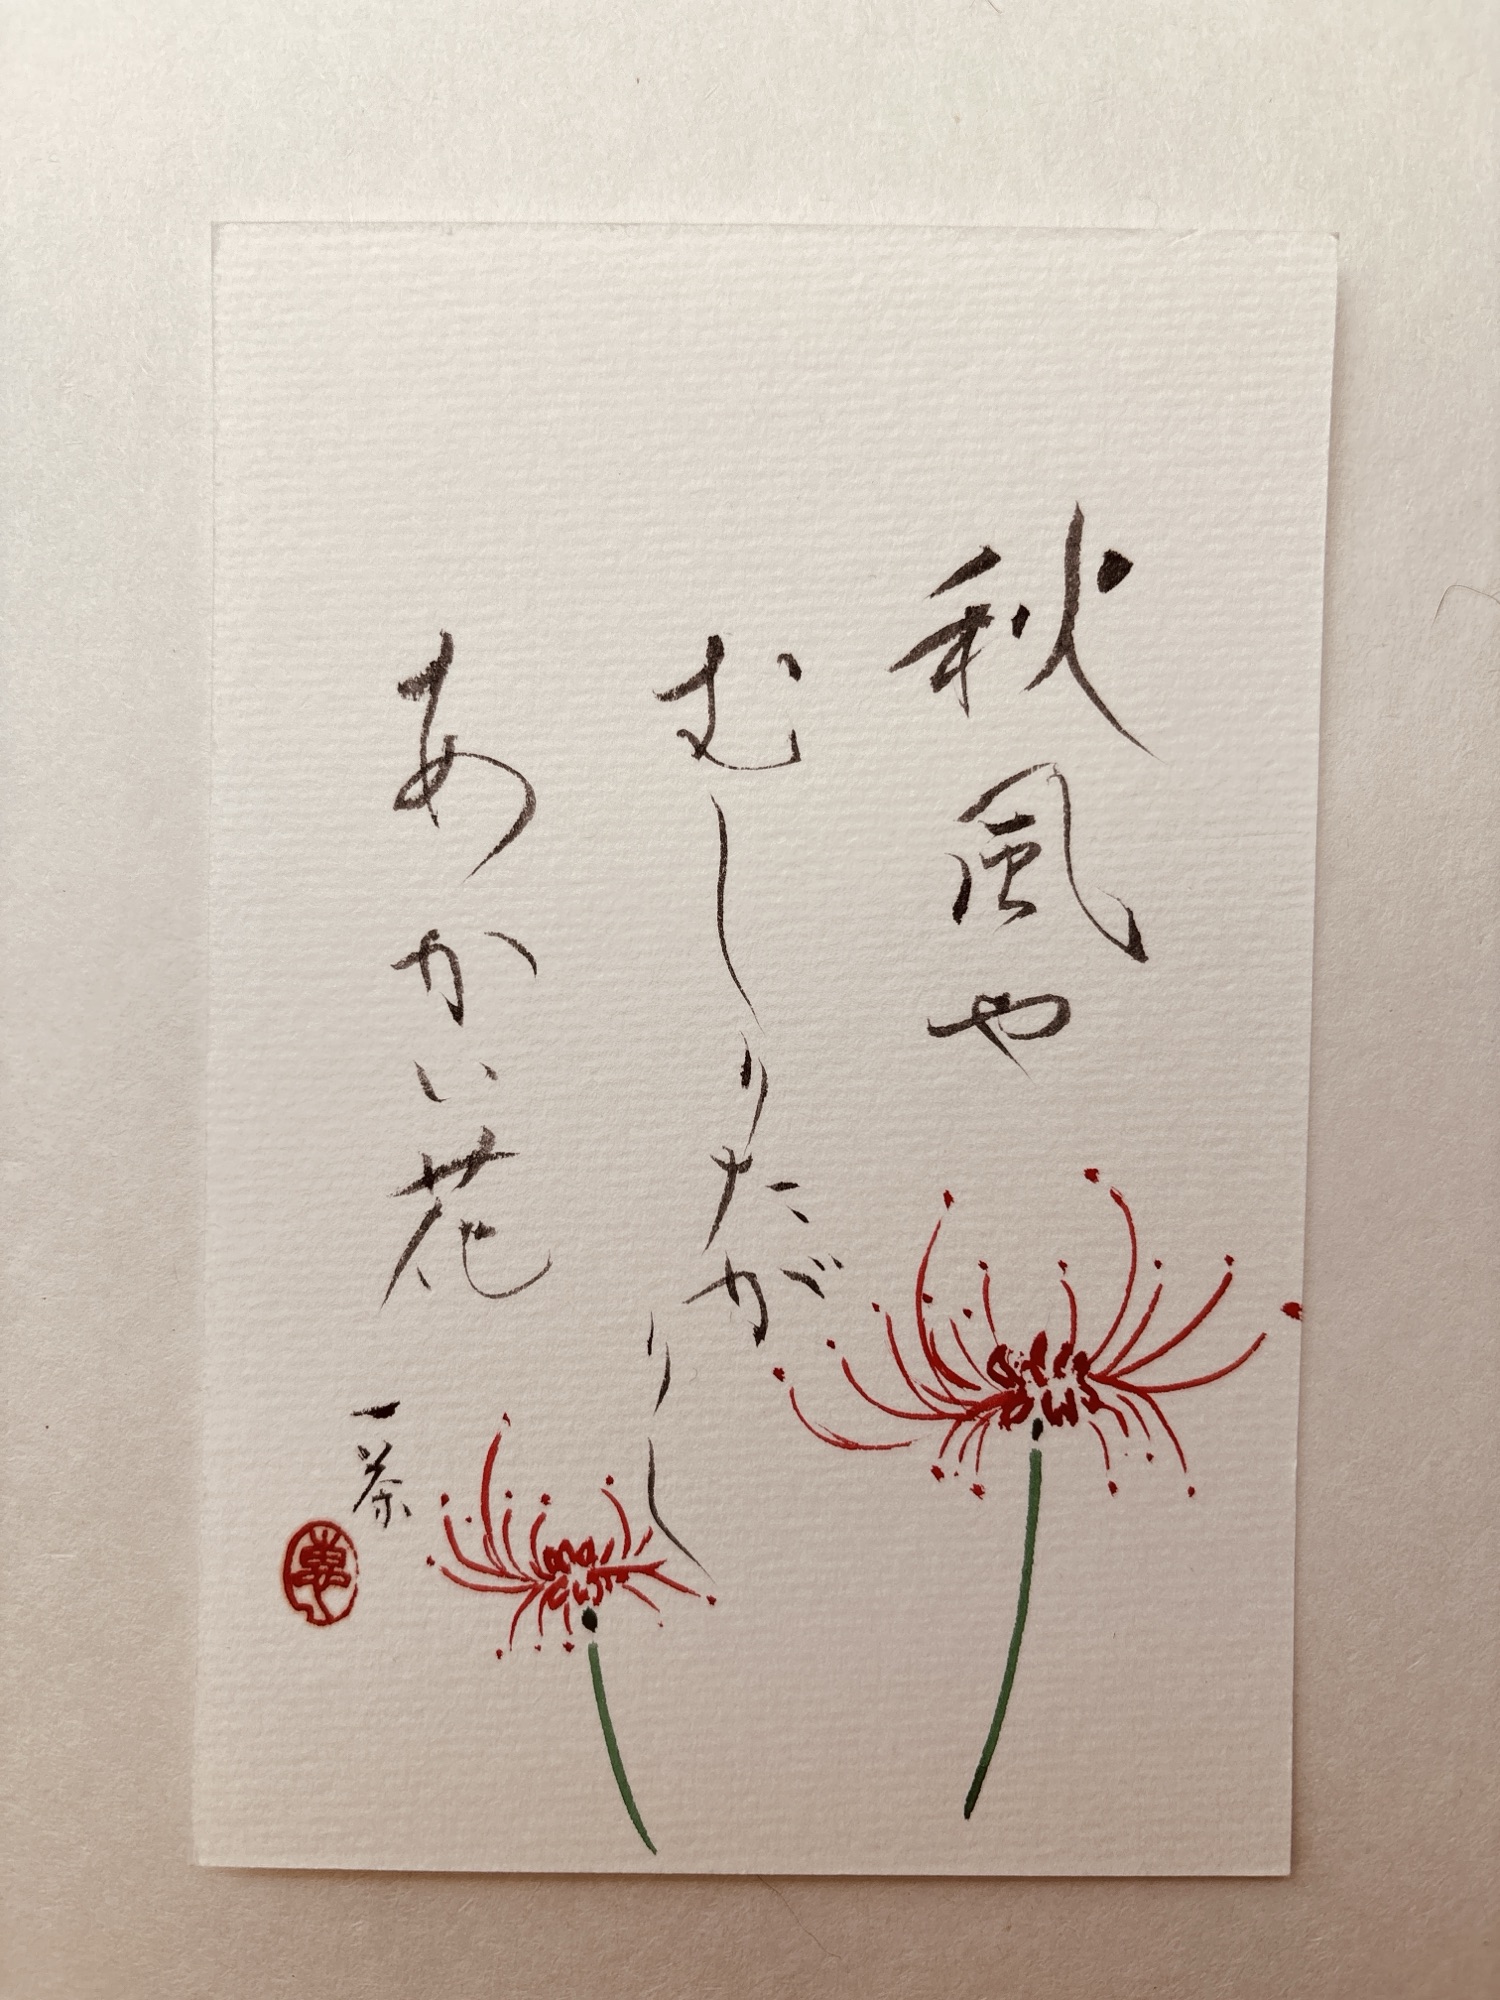 秋風や
むしりたがりし
あかい花
一茶